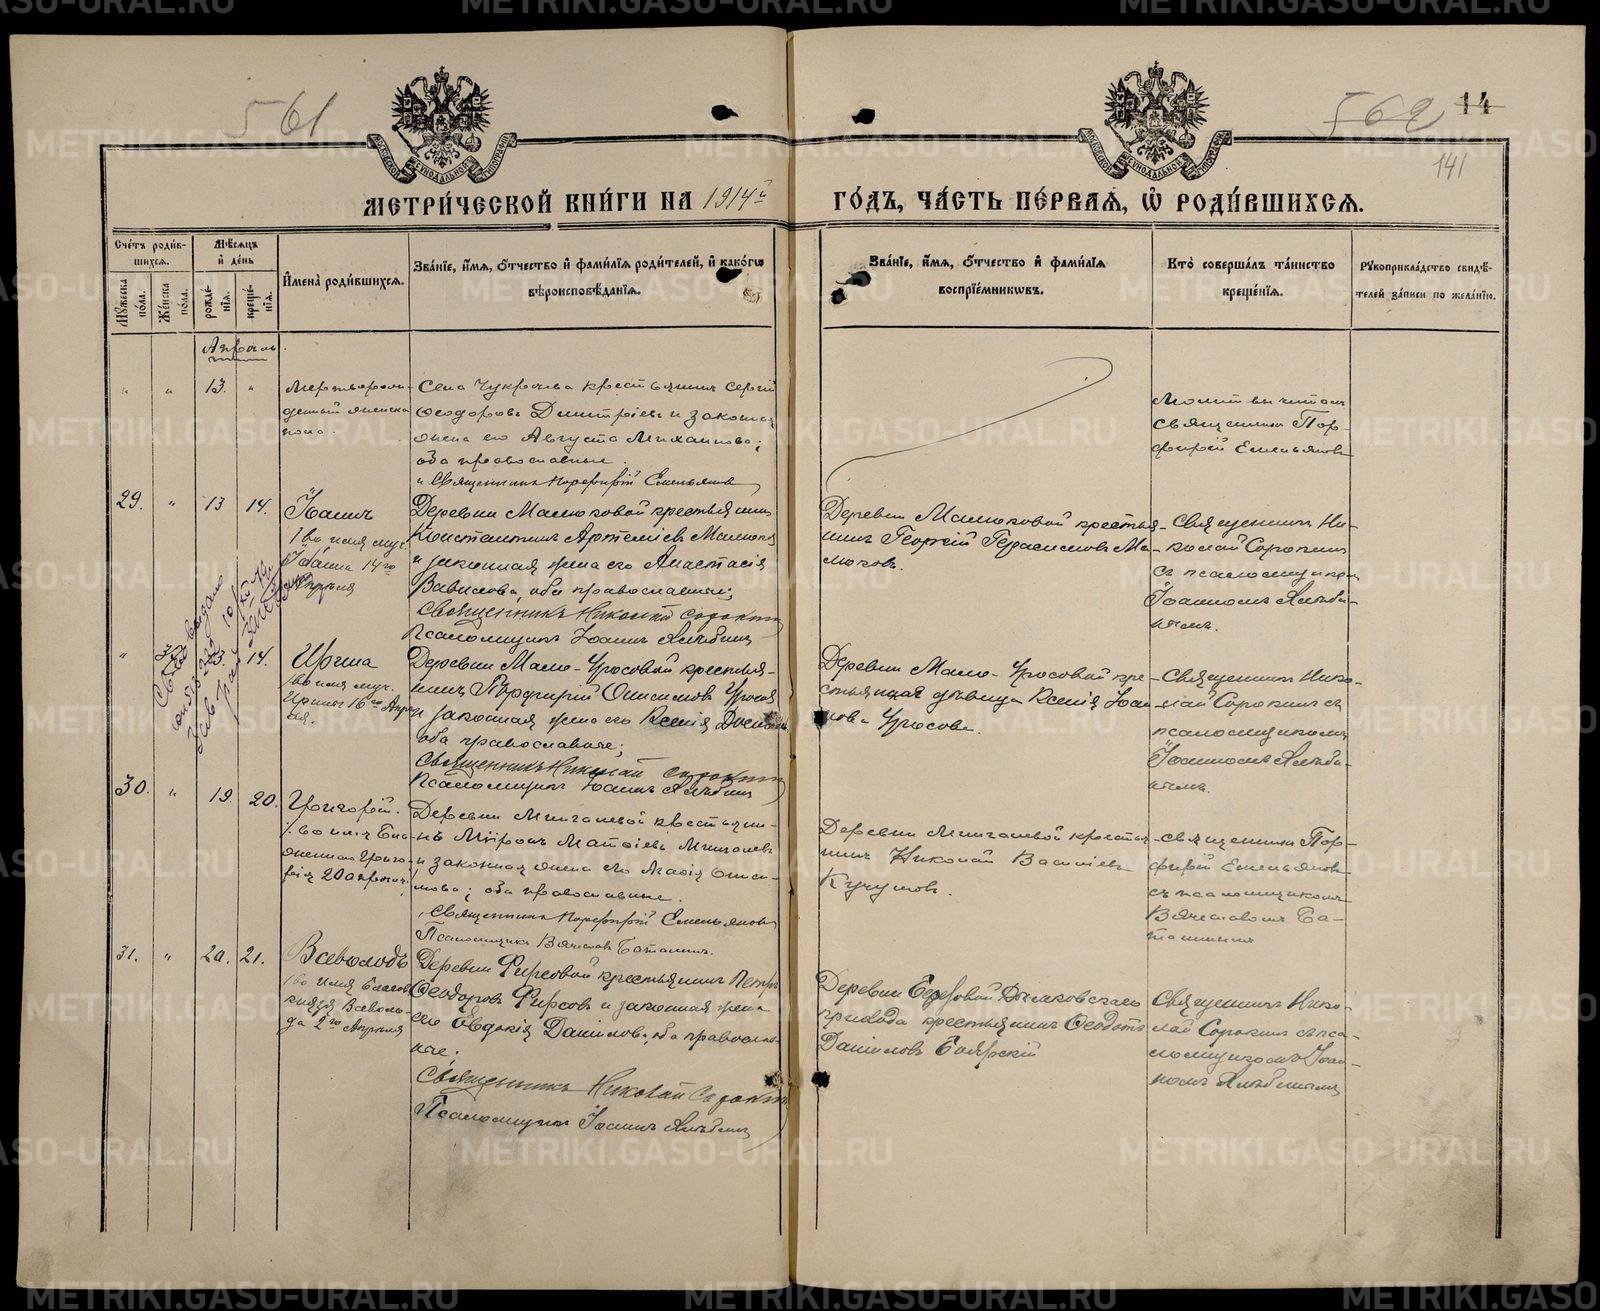 561
562
14
141
МЕТРИ́ЧЕСКОЙ КНИ́ГИ НА 1914й
ГО́ДЪ, ЧА́СТЬ ПЕ́РВАЯ, Ѡ҆ РОДИ́ВШИХСЯ.
Сче́тъ роди́в-
шихся.
Мѣ́сяцъ
и҆ де́нь
Мꙋ́жеска по́ла.
Же́нска по́ла.
рожде́нїя.
креще́нїя.
И҆мена̀ роди́вшихся.
Зва́нїе, и҆́мя, ѻ҆́тчество и҆ фами́лїя роди́телей, и҆ како́гѡ
вѣроисповѣ́данїя.
Зва́нїе, и҆́мя, ѻ҆́тчество и҆ фами́лїя
воспрїе́мникѡвъ.
Кто̀ соверша́лъ та́инство
креще́нїя.
Рꙋкоприкла́дство свидѣ́-
телей за́писи по жела́нїю.
Апрѣль.
" " 13. "
Мертворож-
денный женска
пола.
Села Чукреева крестьянинъ Сергій
Ѳеодоровъ Димитріевъ и законная
жена его Августа Михаилова;
оба православные.
Священникъ Порфирій Емельяновъ
Молитвы читалъ
священникъ Пор-
фирій Емельяновъ
29. " 13 14.
Іоаннъ
во имя муч.
Іоанна 14го
Апрѣля
Деревни Малюковой крестьянинъ
Константинъ Артеміевъ Малюковъ
и законная жена его Анастасія
Вавилова, оба православные;
Священникъ Николай Сорокинъ
Псаломщикъ Іоаннъ
Деревни Малюковой крестья-
нинъ Георгій Герасимовъ Ма-
люковъ.
Священникъ Ни-
колай Сорокинъ
съ псаломщикомъ
Іоанномъ
" 13. 14.
Ирина
во имя муч.
Ирины 16го Апрѣ-
ля.
Деревни Мало-Уросовой крестья-
нинъ Порфирій Онисимовъ Уросовъ
и законная жена его Ксенія
оба православные;
Священникъ Николай Сорокинъ
Псаломщикъ Іоаннъ
Деревни Мало-Уросовой кре-
стьянская дѣвица Ксенія Іоан-
нова Уросова.
Священникъ Нико-
лай Сорокинъ съ
псаломщикомъ
Іоанномъ
30. " 19. 20.
Григорій.
во имя
Григо-
рія 20 апрѣля
Деревни Мингалевой крестьяни-
нъ Миронъ Матѳіевъ Мингалевъ
и законная жена его Марія Ониси-
мова; оба православные.
Священникъ Порфирій Емельяновъ
Псаломщикъ Вячеславъ
Деревни Мингалевой крестья-
нинъ Николай Василіевъ
Кучумовъ.
Священникъ Пор-
фирій Емельяновъ
съ псаломщикомъ
Вячеславомъ
31. " 20. 21.
Всеволодъ
во имя благов.
князя Всеволо-
да 2го Апрѣля
Деревни Фирсовой крестьянинъ Петръ
Ѳеодоровъ Фирсовъ и законная жена
его Евдокія Данилова, оба православ-
ные.
Священникъ Николай Сорокинъ
Псаломщикъ Іоаннъ
Деревни
прихода крестьянинъ Ѳеодотъ
Даніиловъ Боярскій
Священникъ Нико-
лай Сорокинъ съ пса-
ломщикомъ Іоан-
номъ